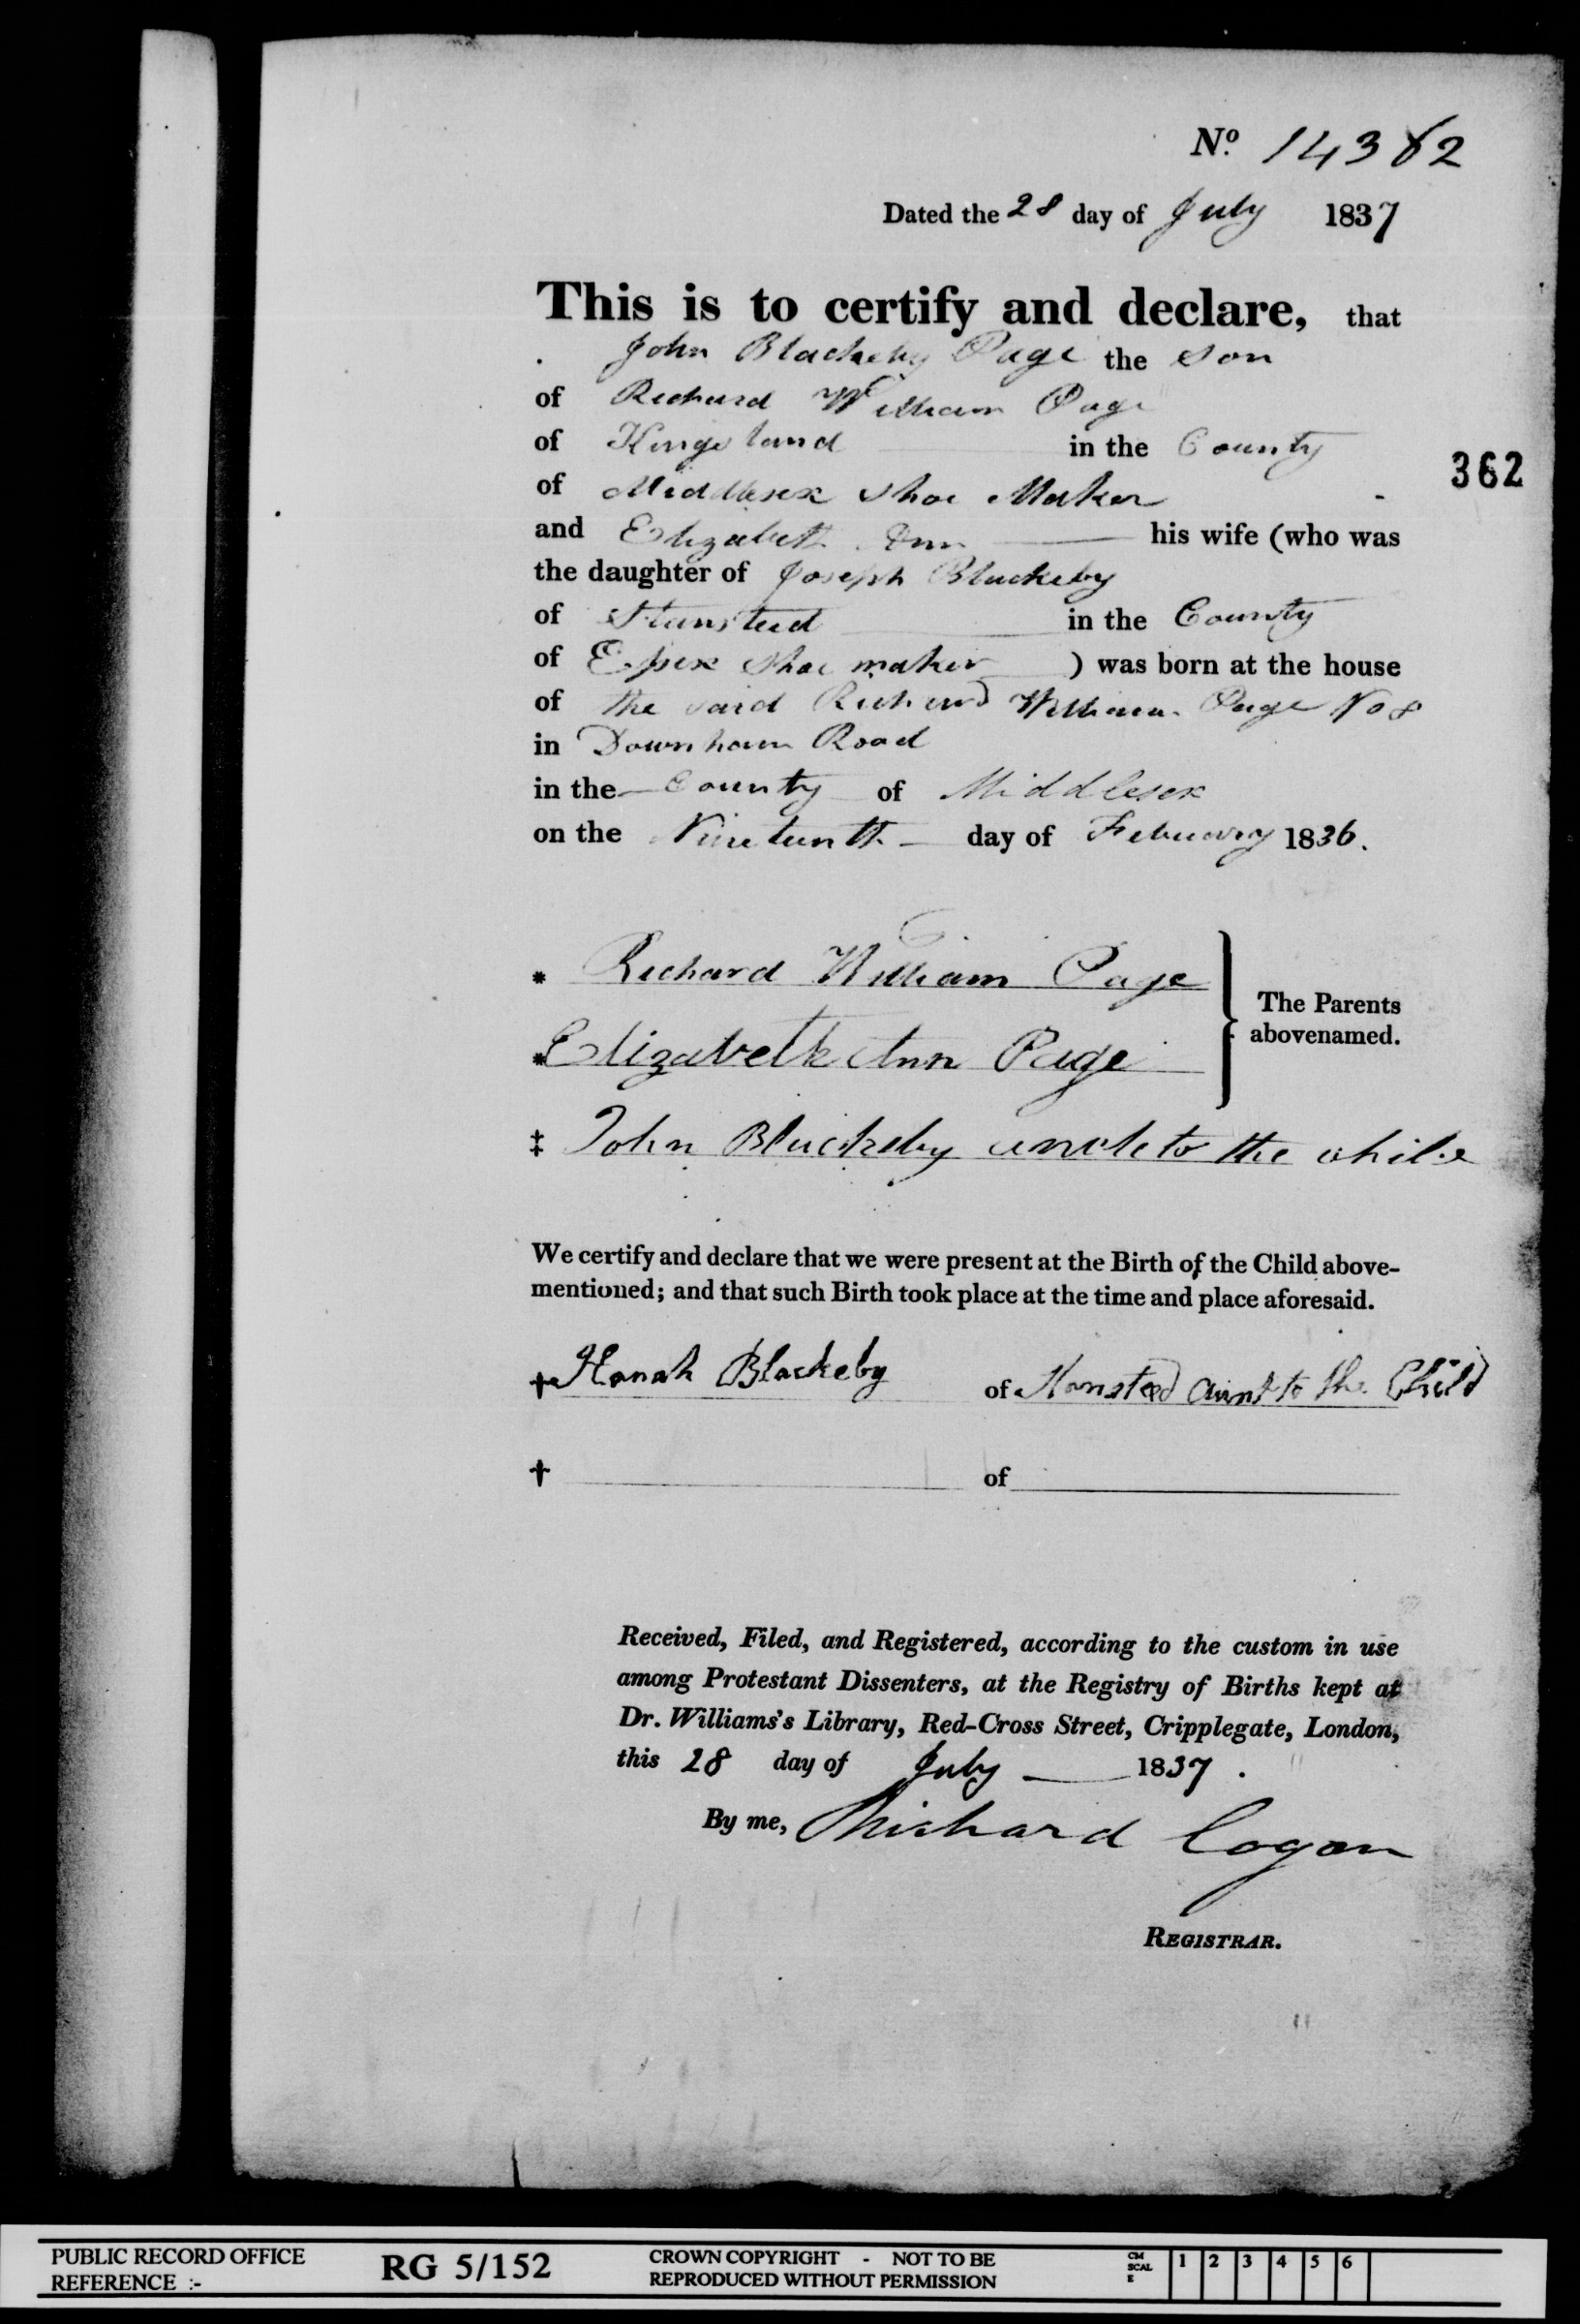 No. 14362
Dated the 28 day of July 1837
This is to certify and declare, that
John Blackeby Page the Son
of Richard William Page
of Kingsland in the County
362
of Middlesex Shoe Maker
and Elizabeth Ann his wife (who was
the daughter of Joseph Blackeby
of Stansted in the County
of Essex Shoe maker ) was born at the house
of the said Richard William Page No 8
in Downham Road
in the County of Middlesex
on the Nineteenth day of February 1836.
* Richard William Page
The Parents
abovenamed.
* Elizabeth Ann Page
‡ John Blackeby uncle to the child
We certify and declare that we were present at the Birth of the Child above-
mentioned; and that such Birth took place at the time and place aforesaid.
† Hanah Blackeby of Stansted Aunt to the Child
† of
Received, Filed, and Registered, according to the custom in use
among Protestant Dissenters, at the Registry of Births kept at
Dr. Williams's Library, Red-Cross Street, Cripplegate, London,
this 28 day of July 1837.
By me, Richard Cogan
REGISTRAR.
PUBLIC RECORD OFFICE
REFERENCE :-
RG 5/152
CROWN COPYRIGHT - NOT TO BE
REPRODUCED WITHOUT PERMISSION
CM
SCAL
E
1 2 3 4 5 6